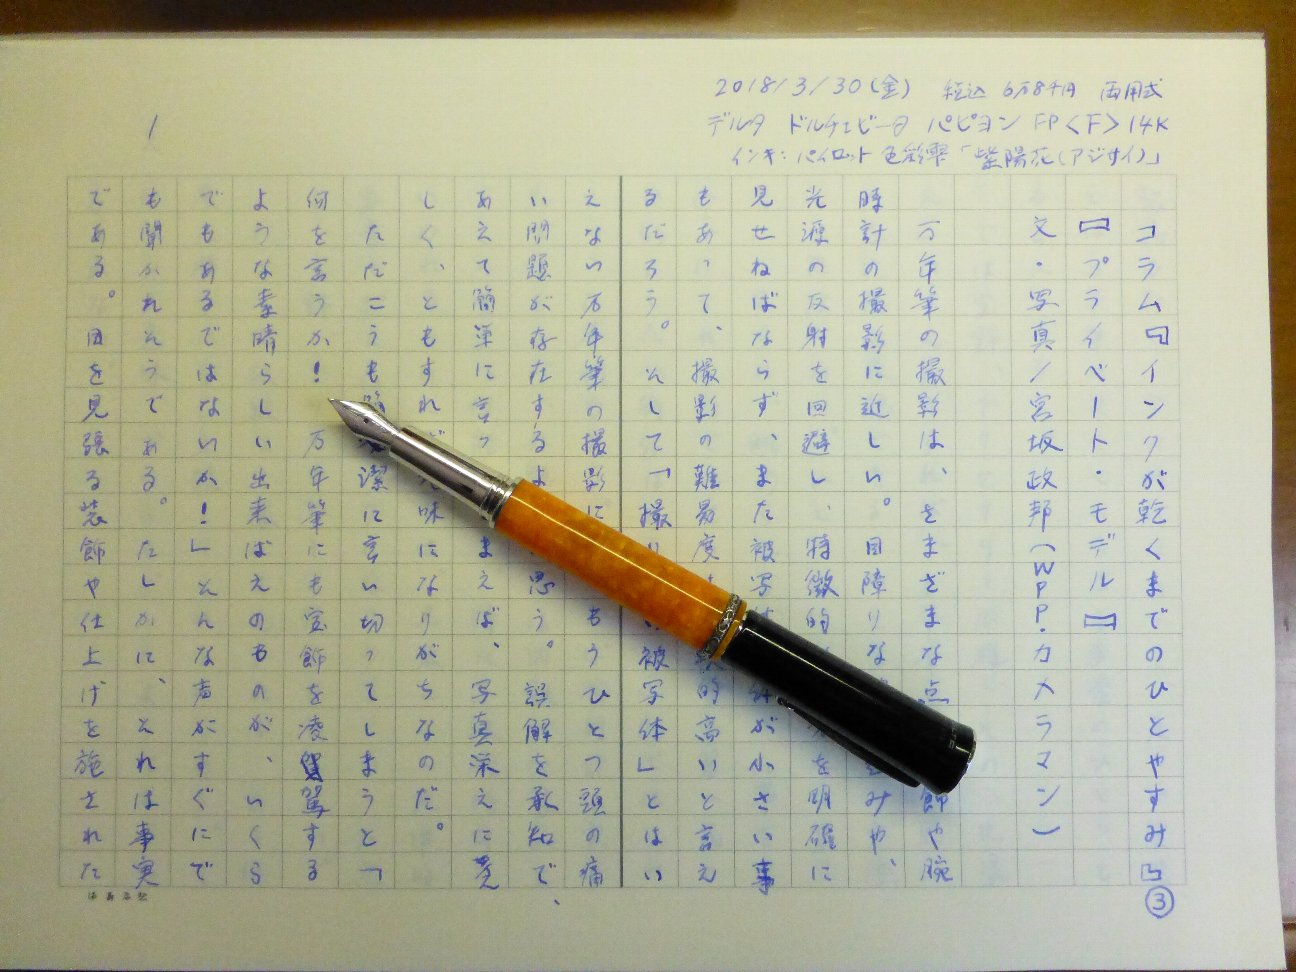 2018/3/30(金) 税込 6万8千円 両用式
デルタ ドルチェビータ パピヨン FP<F>14K
インキ:パイロット 色彩雫「紫陽花(アジサイ)」
1
コラム『インクが乾くまでのひとやすみ』
【プライベート・モデル】
文・写真/宮坂政邦(WPP.カメラマン)
万年筆の撮影は、さまざまな点 飾や腕
時計の撮影に近しい。目障りな みや、
光源の反射を回避し、特徴的 を明確に
見せねばならず、また被写体が小さい事
もあって、撮影の難易度は 的高いと言え
るだろう。そして「撮り 被写体」とはい
えない万年筆の撮影に もうひとつ頭の痛
い問題が存在するよ 思う。誤解を承知で、
あえて簡単に言っ まえば、写真栄えに乏
しく、ともすれ 味になりがちなのだ。
ただこうも 潔に言い切ってしまうと「
何を言うか!万年筆にも宝飾を凌駕する
ような素晴らしい出来ばえのものが、いく
でもあるではないか!」そんな声がすぐにで
も聞かれそうである。たしかに、それは事実
である。目を見張る装飾や仕上げを施された
③